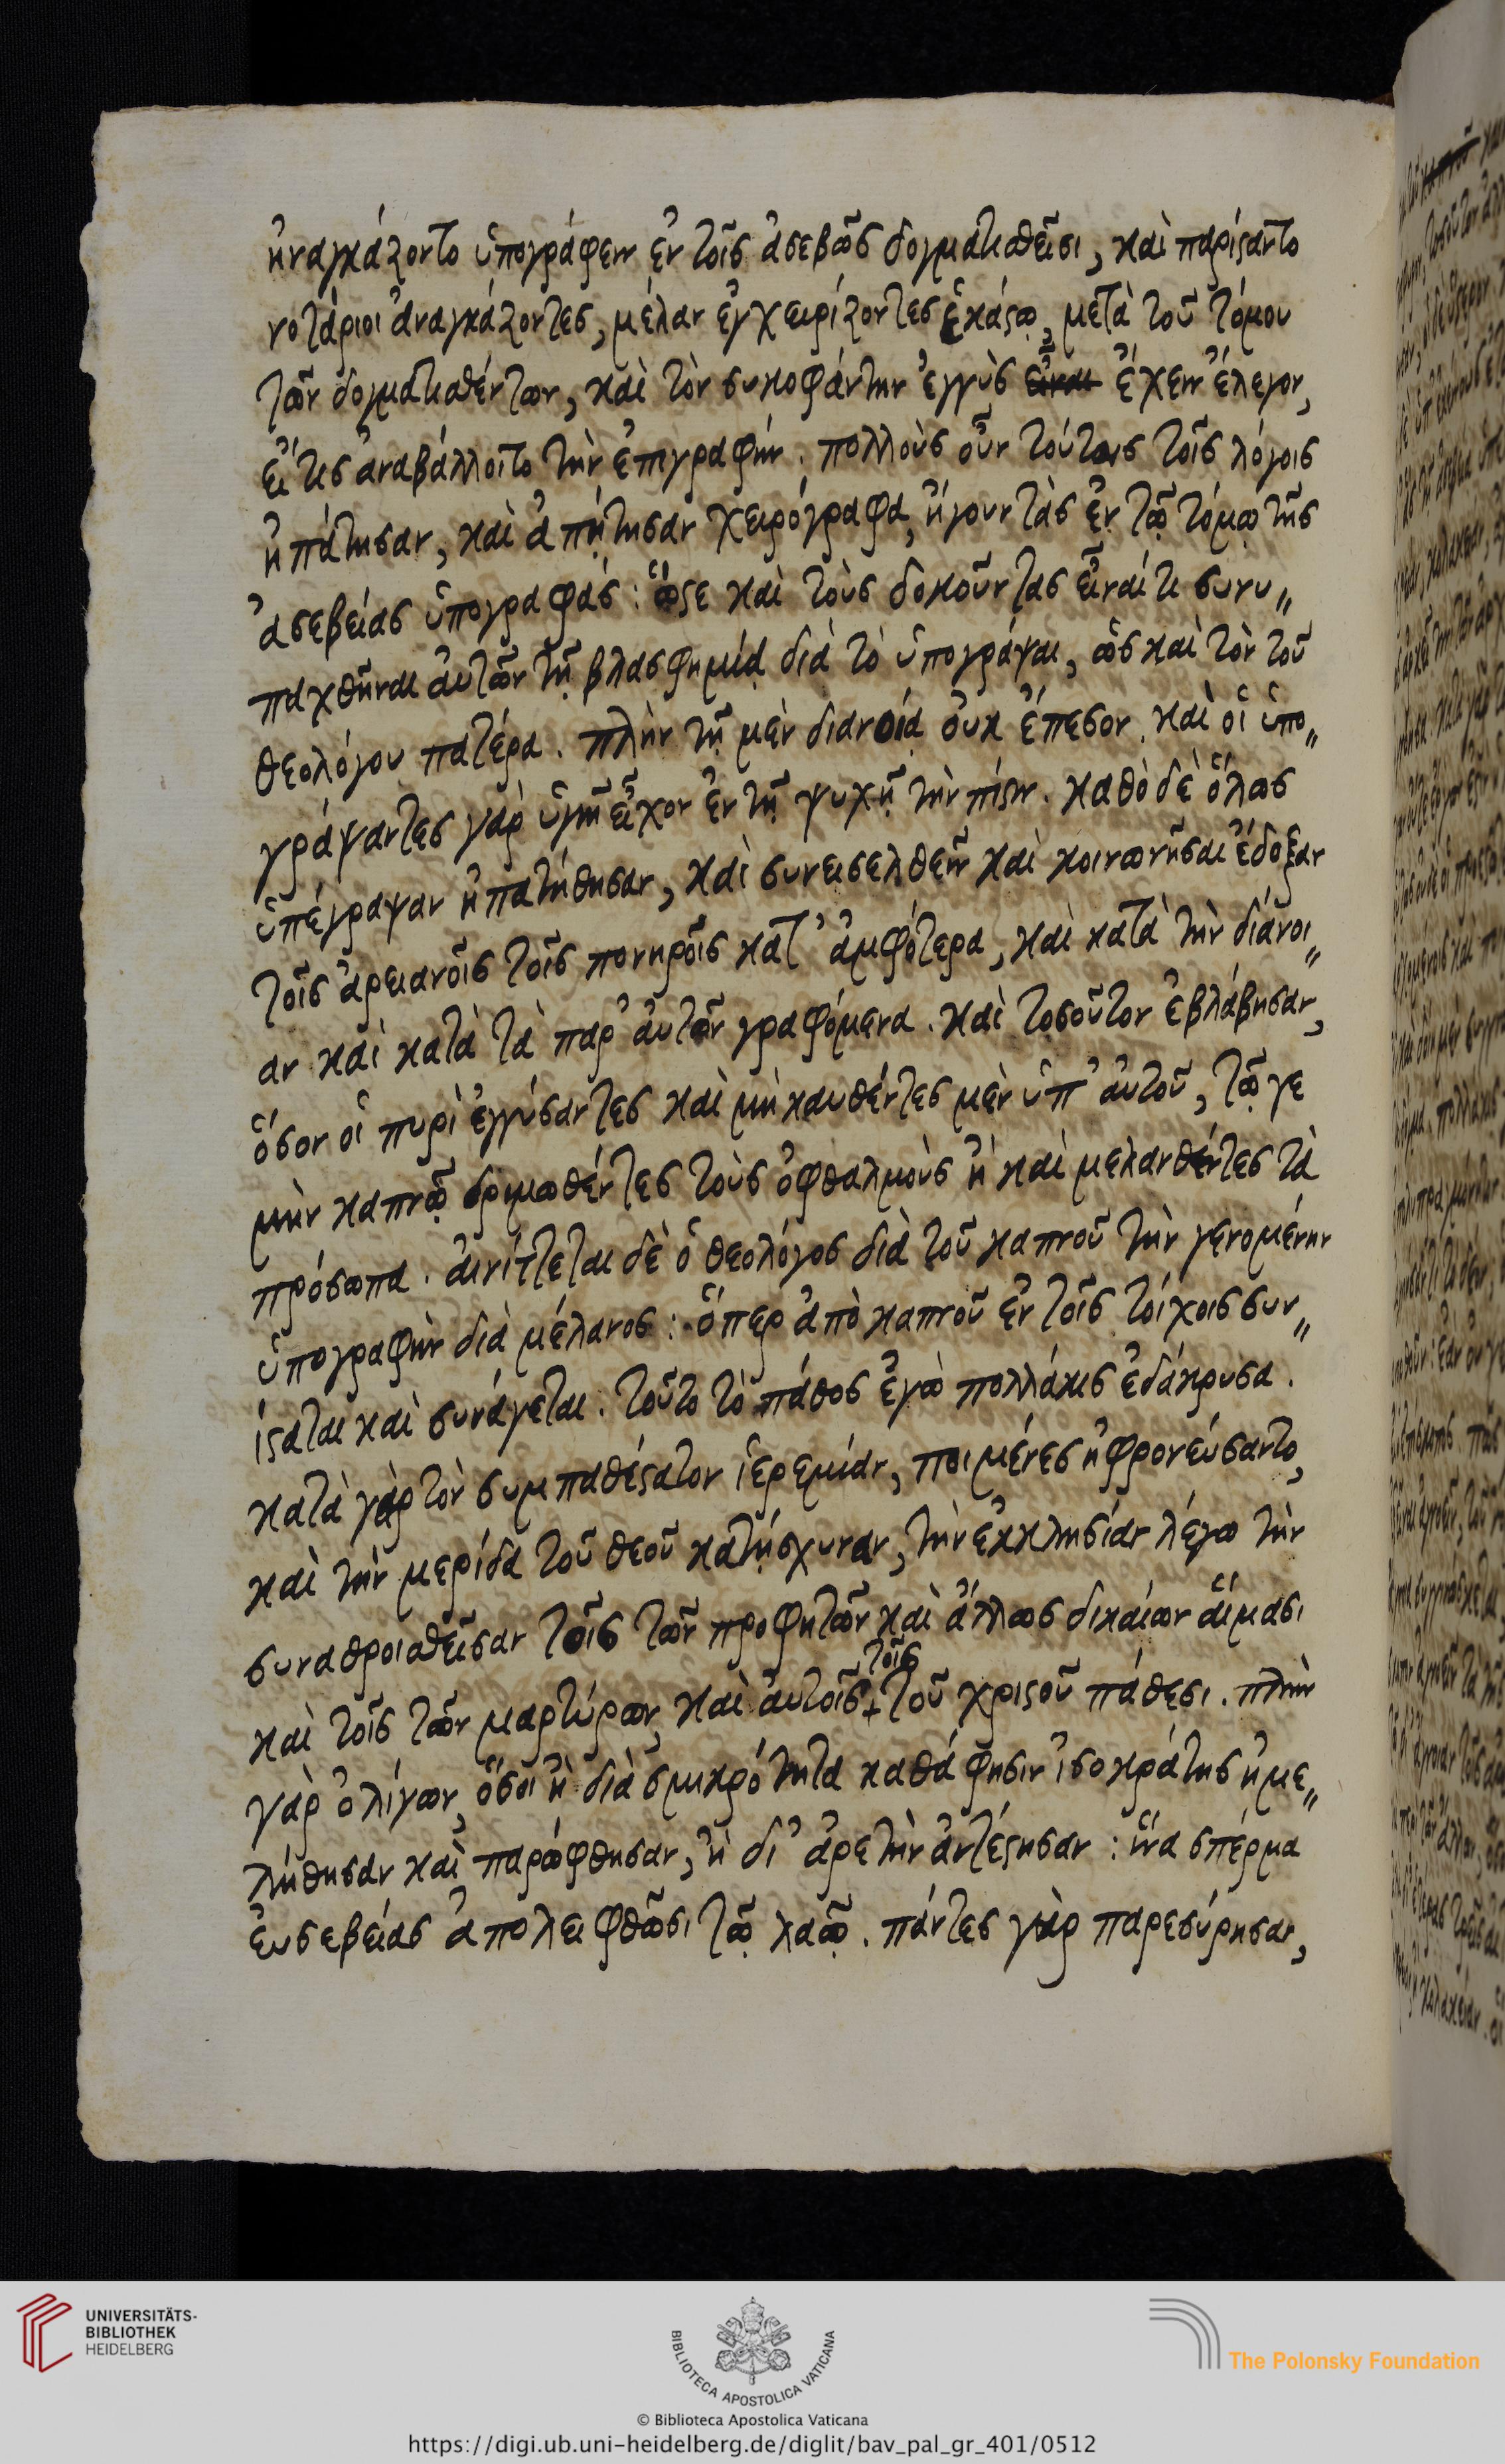 ἠναγκάζοντο ὑπογράφειν ἐν τοῖς ἀσεβῶς δογματισθεῖσι, καὶ παρίσταντο
νοτάριοι ἀναγκάζοντες, μέλαν ἐγχειρίζοντες ἑκάστῳ, μετὰ τοῦ τόμου
τῶν δογματισθέντων, καὶ τὸν συκοφάντην ἐγγὺς εἶναι ἔχειν ἔλεγον,
εἴ τις ἀναβάλλοιτο τὴν ἐπιγραφήν. πολλοὺς οὖν τούτοις τοῖς λόγοις
ἠπάτησαν, καὶ ἀπῄτησαν χειρόγραφα, ἤγουν τὰς ἐν τῷ τόμῳ τῆς
ἀσεβείας ὑπογραφάς: ὥστε καὶ τοὺς δοκοῦντας εἶναί τι συνυ〃
παχθῆναι αὐτῶν τῇ βλασφημίᾳ διὰ τὸ ὑπογράψαι, ὡς καὶ τὸν τοῦ
θεολόγου πατέρα. πλὴν τῇ μὲν διανοίᾳ οὐκ ἔπεσον. καὶ οἱ ὑπο〃
γράψαντες γὰρ ὑγιῆ εἶχον ἐν τῇ ψυχῇ τὴν πίστιν. καθὸ δὲ ὅλως
ὑπέγραψαν ἠπατήθησαν, καὶ συνεισελθεῖν καὶ κοινωνῆσαι ἔδοξαν
τοῖς ἀρειανοῖς τοῖς πονηροῖς κατ' ἀμφότερα, καὶ κατὰ τὴν διάνοι〃
αν καὶ κατὰ τὰ παρ' αὐτῶν γραφόμενα. καὶ τοσοῦτον ἐβλάβησαν,
ὅσον οἱ πυρὶ ἐγγίσαντες καὶ μὴ καυθέντες μὲν ὑπ' αὐτοῦ, τῷ γε
μὴν καπνῷ δριμωθέντες τοὺς ὀφθαλμοὺς ἢ καὶ μελανθέντες τὰ
πρόσωπα. αἰνίττεται δὲ ὁ θεολόγος διὰ τοῦ καπνοῦ τὴν γενομένην
ὑπογραφὴν διὰ μέλανος: ὅπερ ἀπὸ καπνοῦ ἐν τοῖς τοίχοις συν〃
ίσταται καὶ συνάγεται. τοῦτο τὸ πάθος ἐγὼ πολλάκις ἐδάκρυσα.
κατὰ γὰρ τὸν συμπαθέστατον ἱερεμίαν, ποιμένες ἠφρονεύσαντο,
καὶ τὴν μερίδα τοῦ θεοῦ κατῄσχυναν, τὴν ἐκκλησίαν λέγω τὴν
συναθροισθεῖσαν τοῖς τῶν προφητῶν καὶ ἄλλως δικαίων αἵμασι
καὶ τοῖς τῶν μαρτύρων, καὶ αὐτοῖς τοῖς τοῦ χριστοῦ πάθεσι. πλὴν
γὰρ ὀλίγων, ὅσοι ἢ διὰ σμικρότητα καθά φησιν ἰσοκράτης ἠμε〃
λήθησαν καὶ παρώφθησαν, ἢ δι' ἀρετὴν ἀντέστησαν: ἵνα σπέρμα
εὐσεβείας ἀπολειφθῶσι τῷ λαῷ. πάντες γὰρ παρεσύρησαν,
UNIVERSITÄTS-
BIBLIOTHEK
HEIDELBERG
BIBLIOTECA APOSTOLICA VATICANA
The Polonsky Foundation
© Biblioteca Apostolica Vaticana
https://digi.ub.uni-heidelberg.de/diglit/bav_pal_gr_401/0512